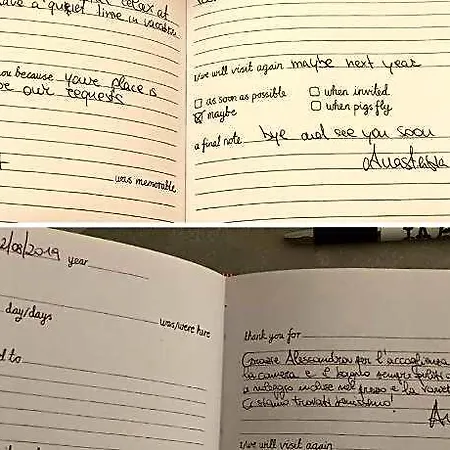 relax at
have a quiet time in vacation
you because your place is
our requests
was memorable
I/we will visit again maybe next year
as soon as possible
when invited
maybe
when pigs fly
a final note bye and see you soon
Anastasia
2/08/2019 year
day/days
was/were here
to
thank you for
Grazie Alessandra per l'accoglienza
la camera e il bagno sempre puliti
noleggio incluse nel prezzo e la
Ci siamo trovati benissimo!
I/we will visit again